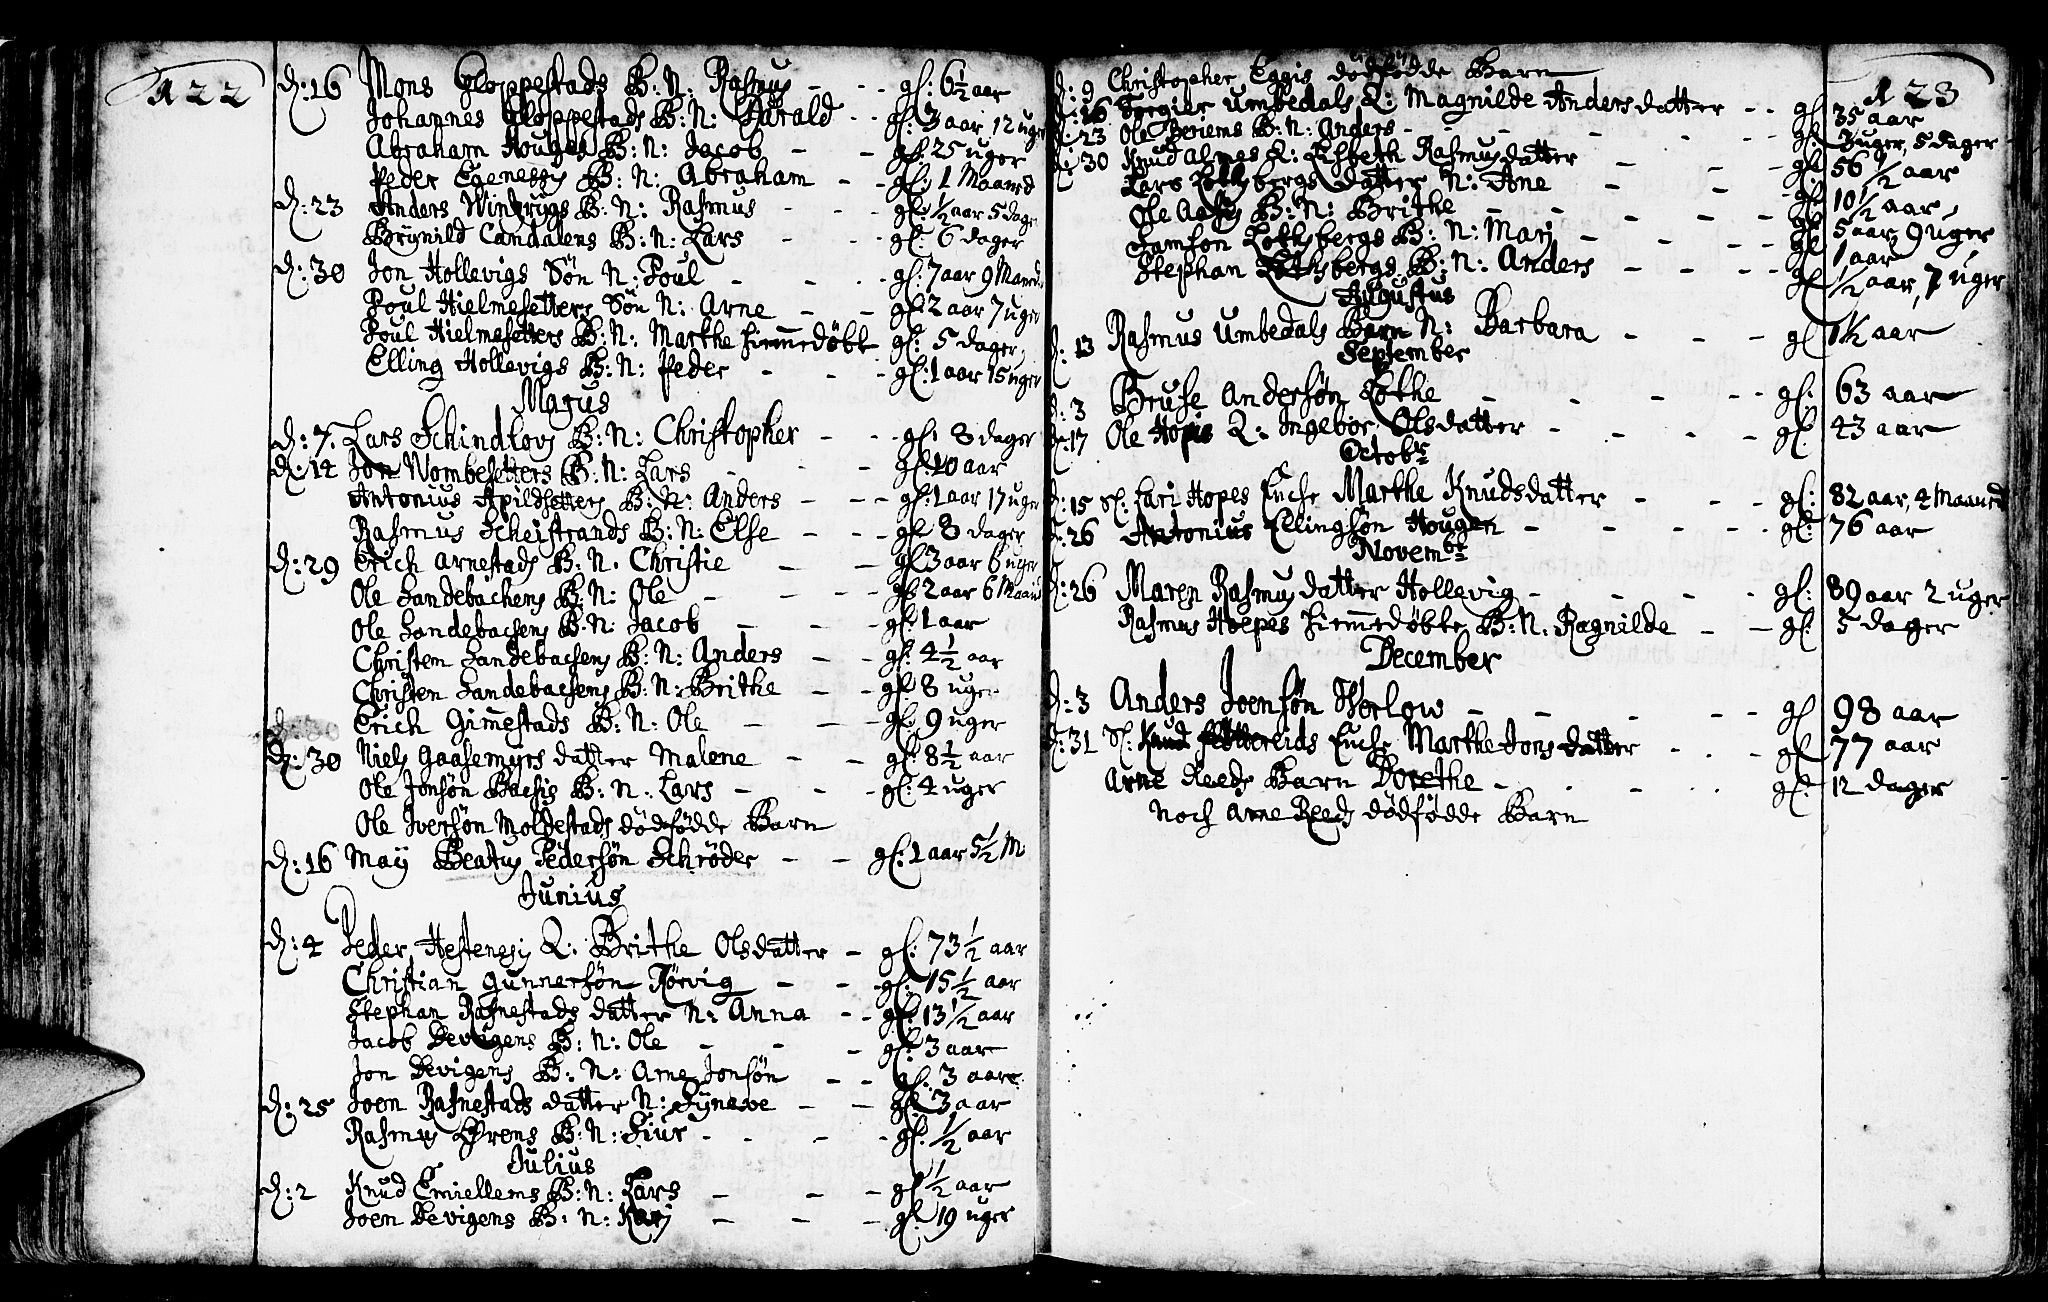 122
d: 16 Mons Gloppestads B: N: Rasmus - - - gl: 6½ aar
Johannes Gloppestads B: N: Harald - - gl: 3 aar 12 uger
Abraham Houges B: N: Jacob - - gl: 25 uger
Peder Egenessis B: N: Abraham - - gl: 1 Maaned
d: 23 Anders Winkrygs B: N: Rasmus - - - gl: ½ aar 5 dage
Brynild Candalens B: N: Lars - - gl: 6 dager
d: 30 Jon Hollevigs Søn N: Poul - - - gl: 7 aar 9 Maaned
Poul Hielmesetters Søn N: Arne - - gl: 2 aar 7 uger
Poul Hielmesetters B: N: Marthe Hiemmedøbt gl: 5 dager
Elling Hollevigs B: N: Peder - - - gl: 1 aar 15 uger
Majus
d: 7. Lars Schindlovs B: N: Christopher - - - gl: 8 dager
d: 14 Jon Wombesetters B: N: Lars - - - gl: 10 aar
Antonius Apildsetters B: N: Anders - - - gl: 1 aar 17 uger
Rasmus Scheistrands B: N: Else - - - gl 8 dager
d: 29 Erich Arnestads B: N. Christie - - gl 3 aar 6 uger
Ole Sandebachens B: N: Ole - - - - gl 2 aar 6 Maan
Ole Sandebachens B: N: Jacob - - - gl: 1 aar
Christen Sandebachens B: N: Anders - - gl: 4½ aar
Christen Sandebachens B: N: Brithe - - gl 8 uger
Erich Gimmestads B: N: Ole - - - gl. 9 uger
d: 30 Niels Gaasemyrs datter Malene - - gl: 8½ aar
Ole Jonsøn Bachsis B: N: Lars - - - gl: 4 uger
Ole Iversøn Moldestads dødfødde Barn
d: 16 May Beatus Pedersøn Schrøder - - gl: 1 aar 5½ M
Junius
d: 4 Peder Hestenesis Q: Brithe Olsdatter - gl: 73½ aar
Christian Gunnersøn Rørvig - - - gl: 15½ aar
Stephan Rasnestads datter N: Anna - - gl: 13½ aar
Jacob Devigens B: N: Ole - - - gl: 3 aar
Jon Devigens B: N: Arne Jonsøn - - gl: 3 aar
d: 25 Joen Rasnestads datter N: Synneve - - gl 3 aar
Rasmus Lyrens B: N: Siur - - - - gl: ½ aar
Julius
d: 2 Knud Emiellems B: N: Lars - - - gl ½ aar
Joen Devigens B: N: Karj - - - gl: 19 uger
123
d: 9 Christopher Eggis dødfødde Barn
d: 16 Umbedals Q: Magnilde Andersdatter - - gl 35 aar
d: 23 Ole B: N: Anders - - - - - gl: 3 uger, 5 dager
d: 30 Knud Alnes Q: Lisbeth Rasmusdatter - - - gl 56½ aar
Lars Lothsbergs datter N: Ane - - - gl 10½ aar
Ole B: N: Brithe - - - - gl 5 aar, 9 uger
Samson Lothsbergs B: N: Marj - - - gl 1 aar
Stephan Lothsbergs B: N: Anders - - - - gl ½ aar, 7 uger
Augustus
d: 13 Rasmus Umbedals Barn N: Barbara - - - gl 1½ aar
September
d: 3 Bruse Andersøn Lothe - - - - gl: 63 aar
d: 17 Ole Hopis Q: Ingebor Olsdatter - - - - gl: 43 aar
Octobr
d: 15 Sl: Lari Hopes Enche Marthe Knudsdatter - - - gl: 82 aar, 4 Maaned
d: 26 Antonius Ellingsøn Hougen - - - - gl: 76 aar
Novembr
d: 26 Maren Rasmusdatter Hollevig - - - - gl: 89 aar 2 uger
Rasmus Hoepes Hiemmedøbte B: N. Ragnilde - - gl: 5 dager
December
d: 3 Anders Joensøn Werlow - - - - - gl 98 aar
d: 31 Sl: Knud Enche Marthe Jons datter - - - gl 77 aar
Arne Reeds Barn Dorethe - - - - gl: 12 dager
Noch Arne Reeds dødfødde Barn